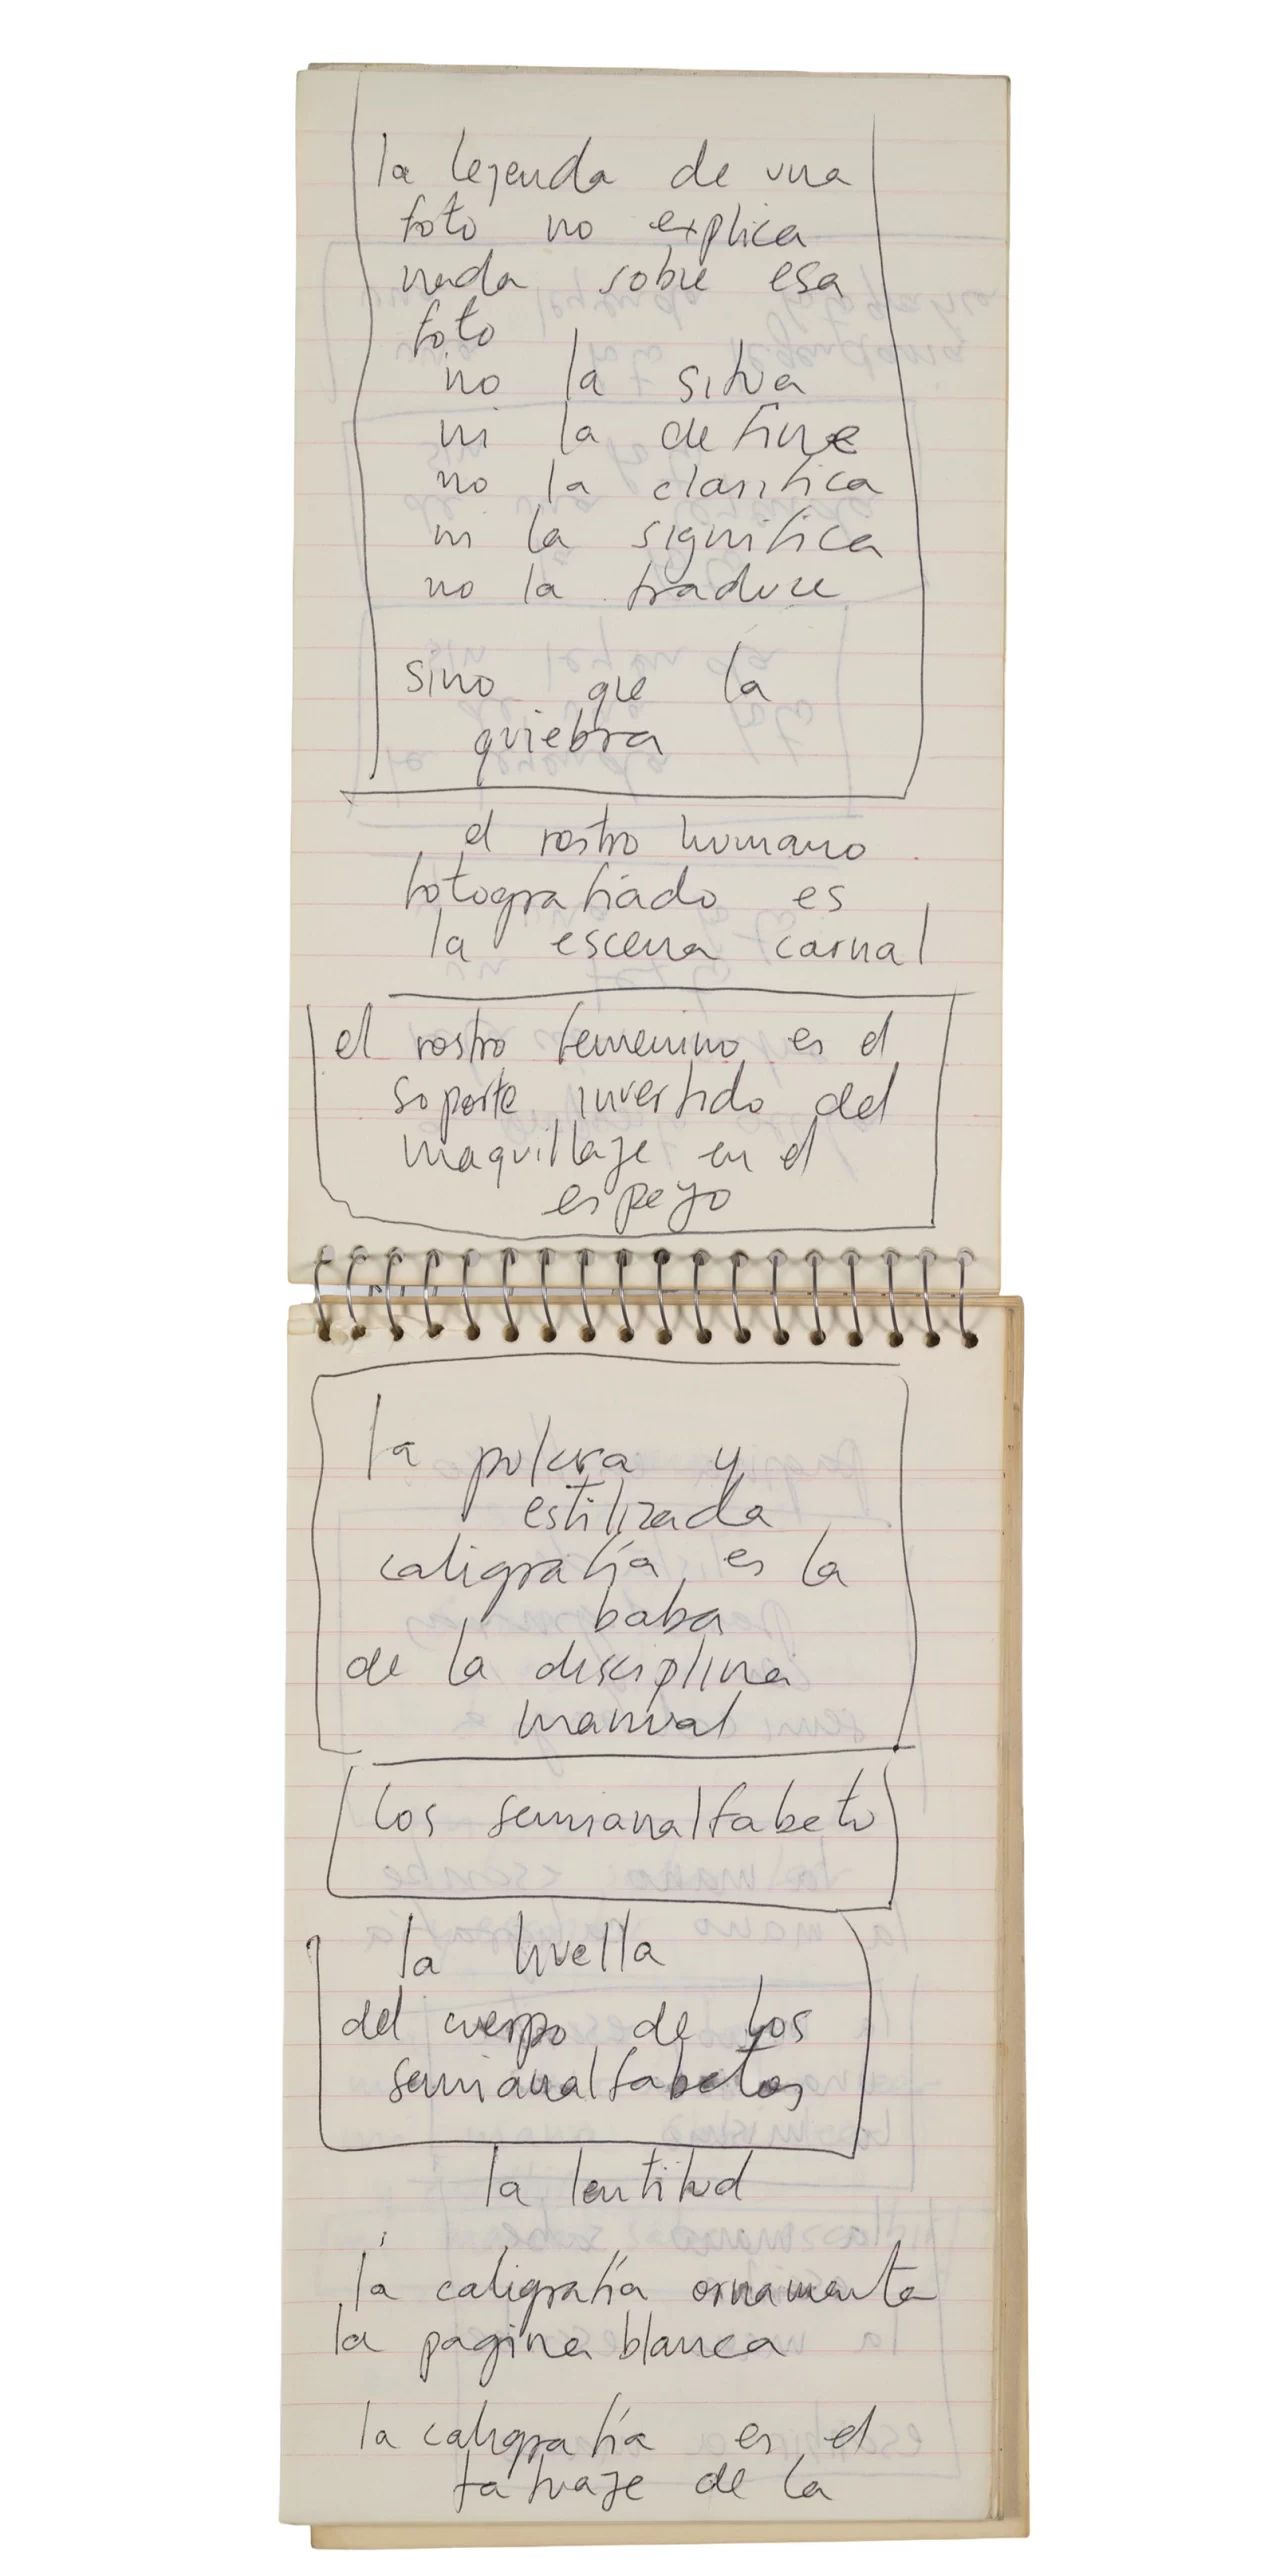 la leyenda de una
foto no explica
nada sobre esa
foto
no la situa
ni la define
no la clasifica
ni la significa
no la traduce
sino que la
quiebra
el rostro humano
fotografiado es
la escena carnal
el rostro femenino es el
soporte invertido del
maquillaje en el
espejo
la pulcra y
estilizada
caligrafía es la
baba
de la disciplina
manual
los semianalfabeto
la huella
del cuerpo de los
semianalfabetos
la lentitud
la caligrafía ornamenta
la pagina blanca
la caligrafía es el
tatuaje de la